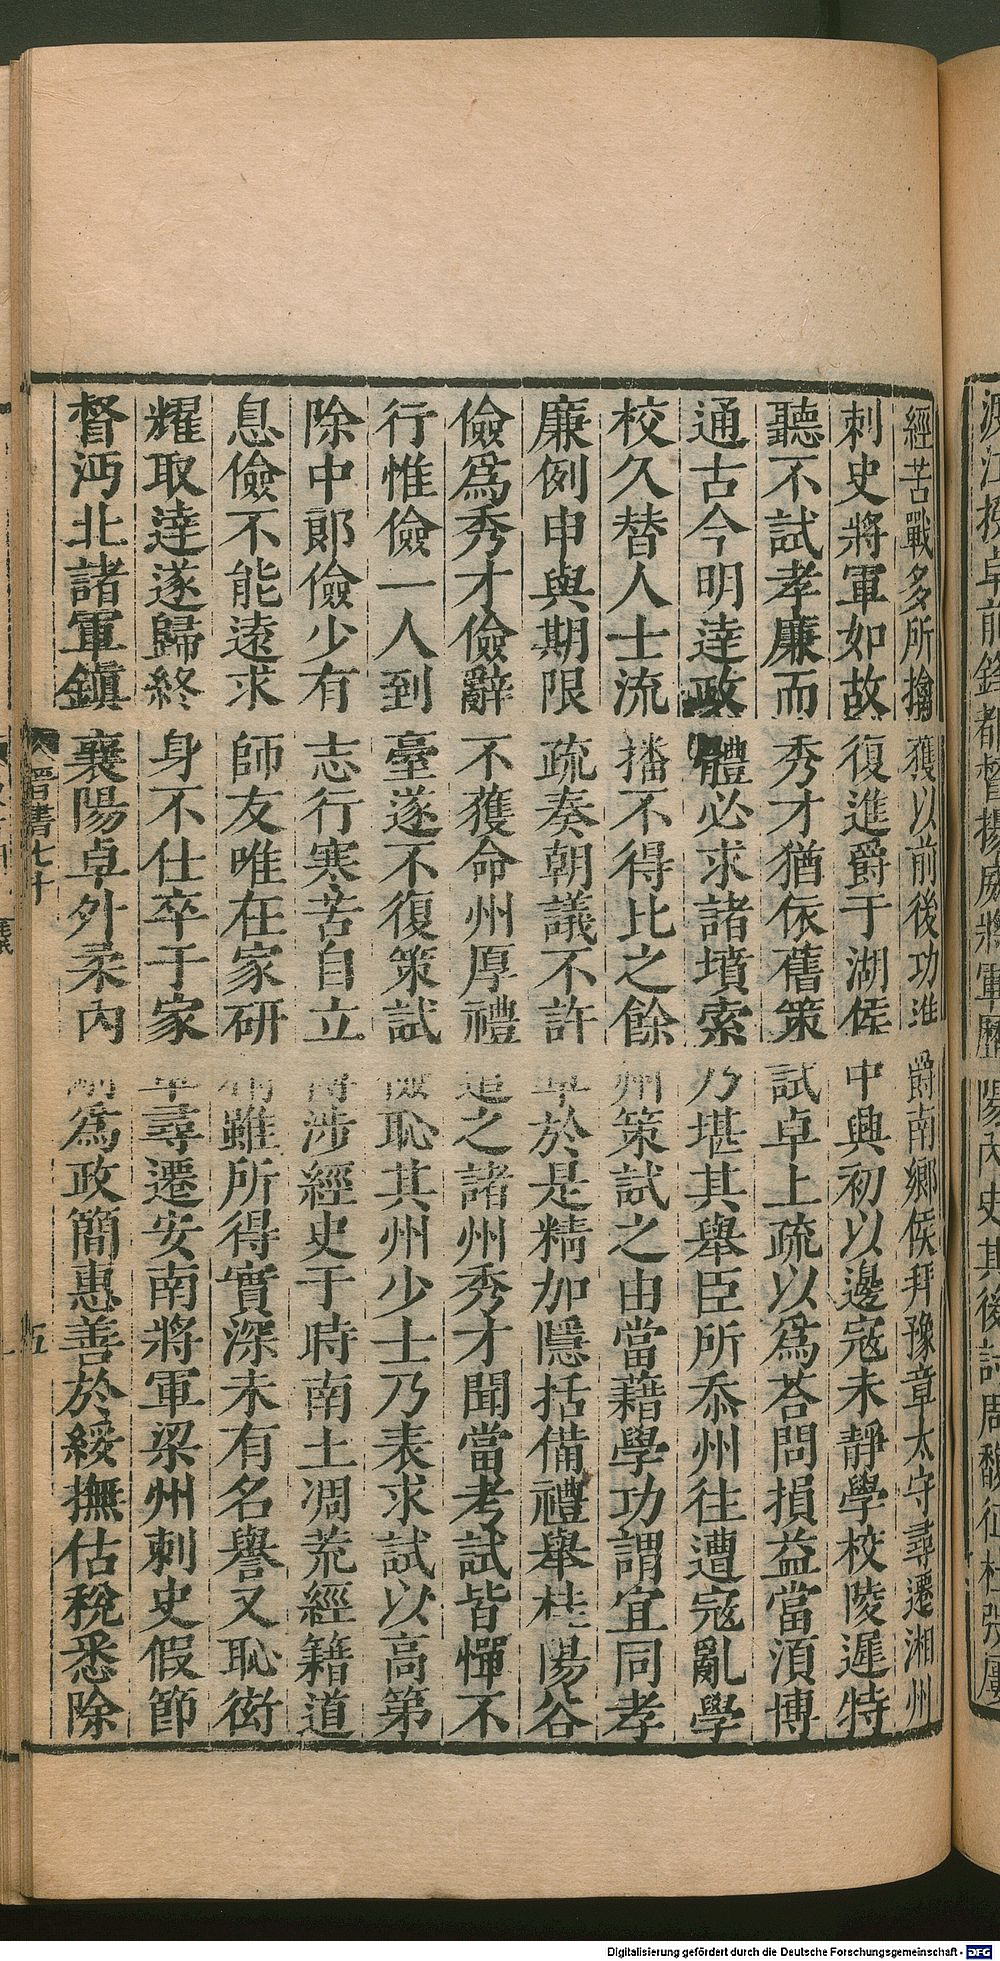 經苦戰多所擒獲以前後功進爵南鄉侯拜豫章太守尋遷湘州
刺史將軍如故復進爵于湖侯中興初以邊寇未靜學校陵遲特
聽不試孝廉而秀才猶依舊策試卓上疏以爲荅問損益當湏博
通古今明達政體必求諸墳索乃堪其舉臣所忝州往遭寇亂學
校久替人士流播不得比之餘州策試之由當藉學功謂宜同孝
廉例申與期限疏奏朝議不許卓於是精加隱括備禮舉桂陽谷
儉爲秀才儉辭不獲命州厚禮遣之諸州秀才聞當考試皆憚不
行惟儉一人到臺遂不復策試儉恥其州少士乃表求試以高第
除中郎儉少有志行寒苦自立博涉經史于時南土凋荒經籍道
息儉不能遠求師友唯在家研精雖所得實深未有名譽又恥衒
耀取達遂歸終身不仕卒于家卓尋遷安南將軍梁州刺史假節
督沔北諸軍鎮襄陽卓外柔內剛爲政簡惠善於綏撫估稅悉除
晋書七十
五
渡江授卓前鋒都督揚威將軍歷陽內史其後討周馥征杜弢屢
Digitalisierung gefördert durch die Deutsche Forschungsgemeinschaft - DFG